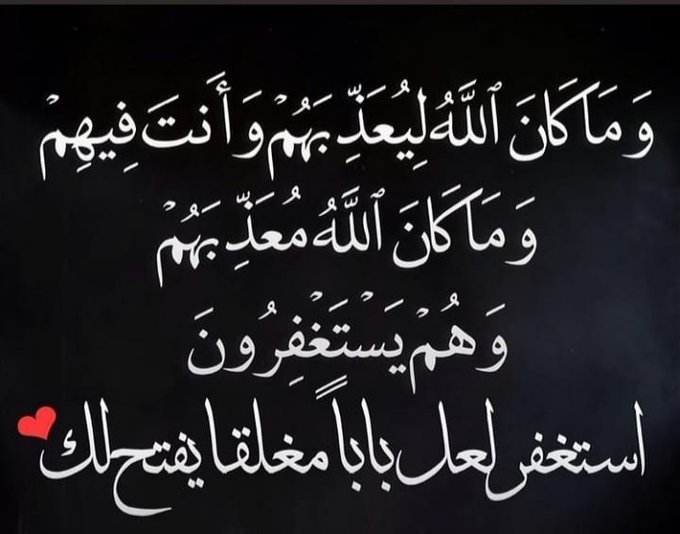 وَمَا كَانَ ٱللَّهُ لِيُعَذِّبَهُمْ وَأَنتَ فِيهِمْ
وَمَا كَانَ ٱللَّهُ مُعَذِّبَهُمْ
وَهُمْ يَسْتَغْفِرُونَ
استغفر لعل باباً مغلقا يفتح لك